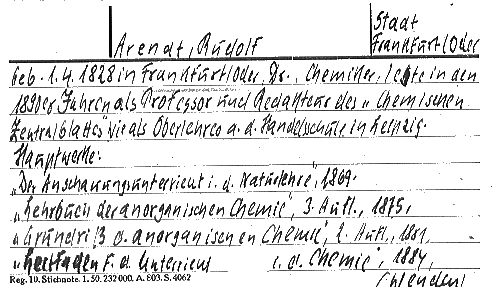 Stadt
Arendt, Rudolf Frankfurt/Oder
Geb. 1.4.1828 in Frankfurt/Oder, Dr., Chemiker, lebte in den
1890er Jahren als Professor und Redakteur des „Chemischen
Zentralblattes" wie als Oberlehrer a. d. Handelsschule in Leipzig.
Hauptwerke:
„Der Anschauungsunterricht i. d. Naturlehre", 1869.
„Lehrbuch der anorganischen Chemie", 3. Aufl., 1875,
„Grundriß d. anorganischen Chemie", 2. Aufl., 1881,
„Leitfaden f. d. Unterricht i. d. Chemie", 1884,
Reg. 10. Stichnote. 1. 50. 232 000. A. 803. S. 4062